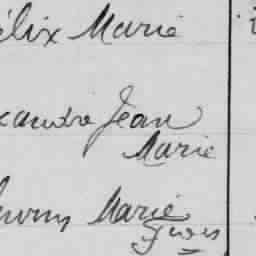 élix Marie
xandre Jean
Marie
Marie
Yves